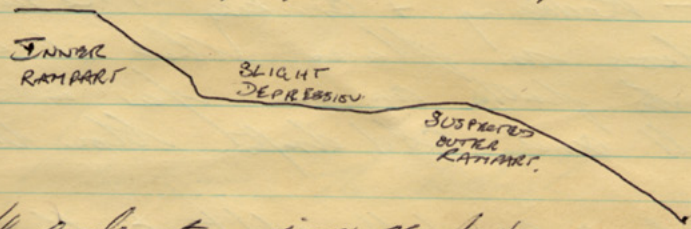 INNER
RAMPART
SLIGHT
DEPRESSION
SUSPECTED
OUTER
RAMPART.